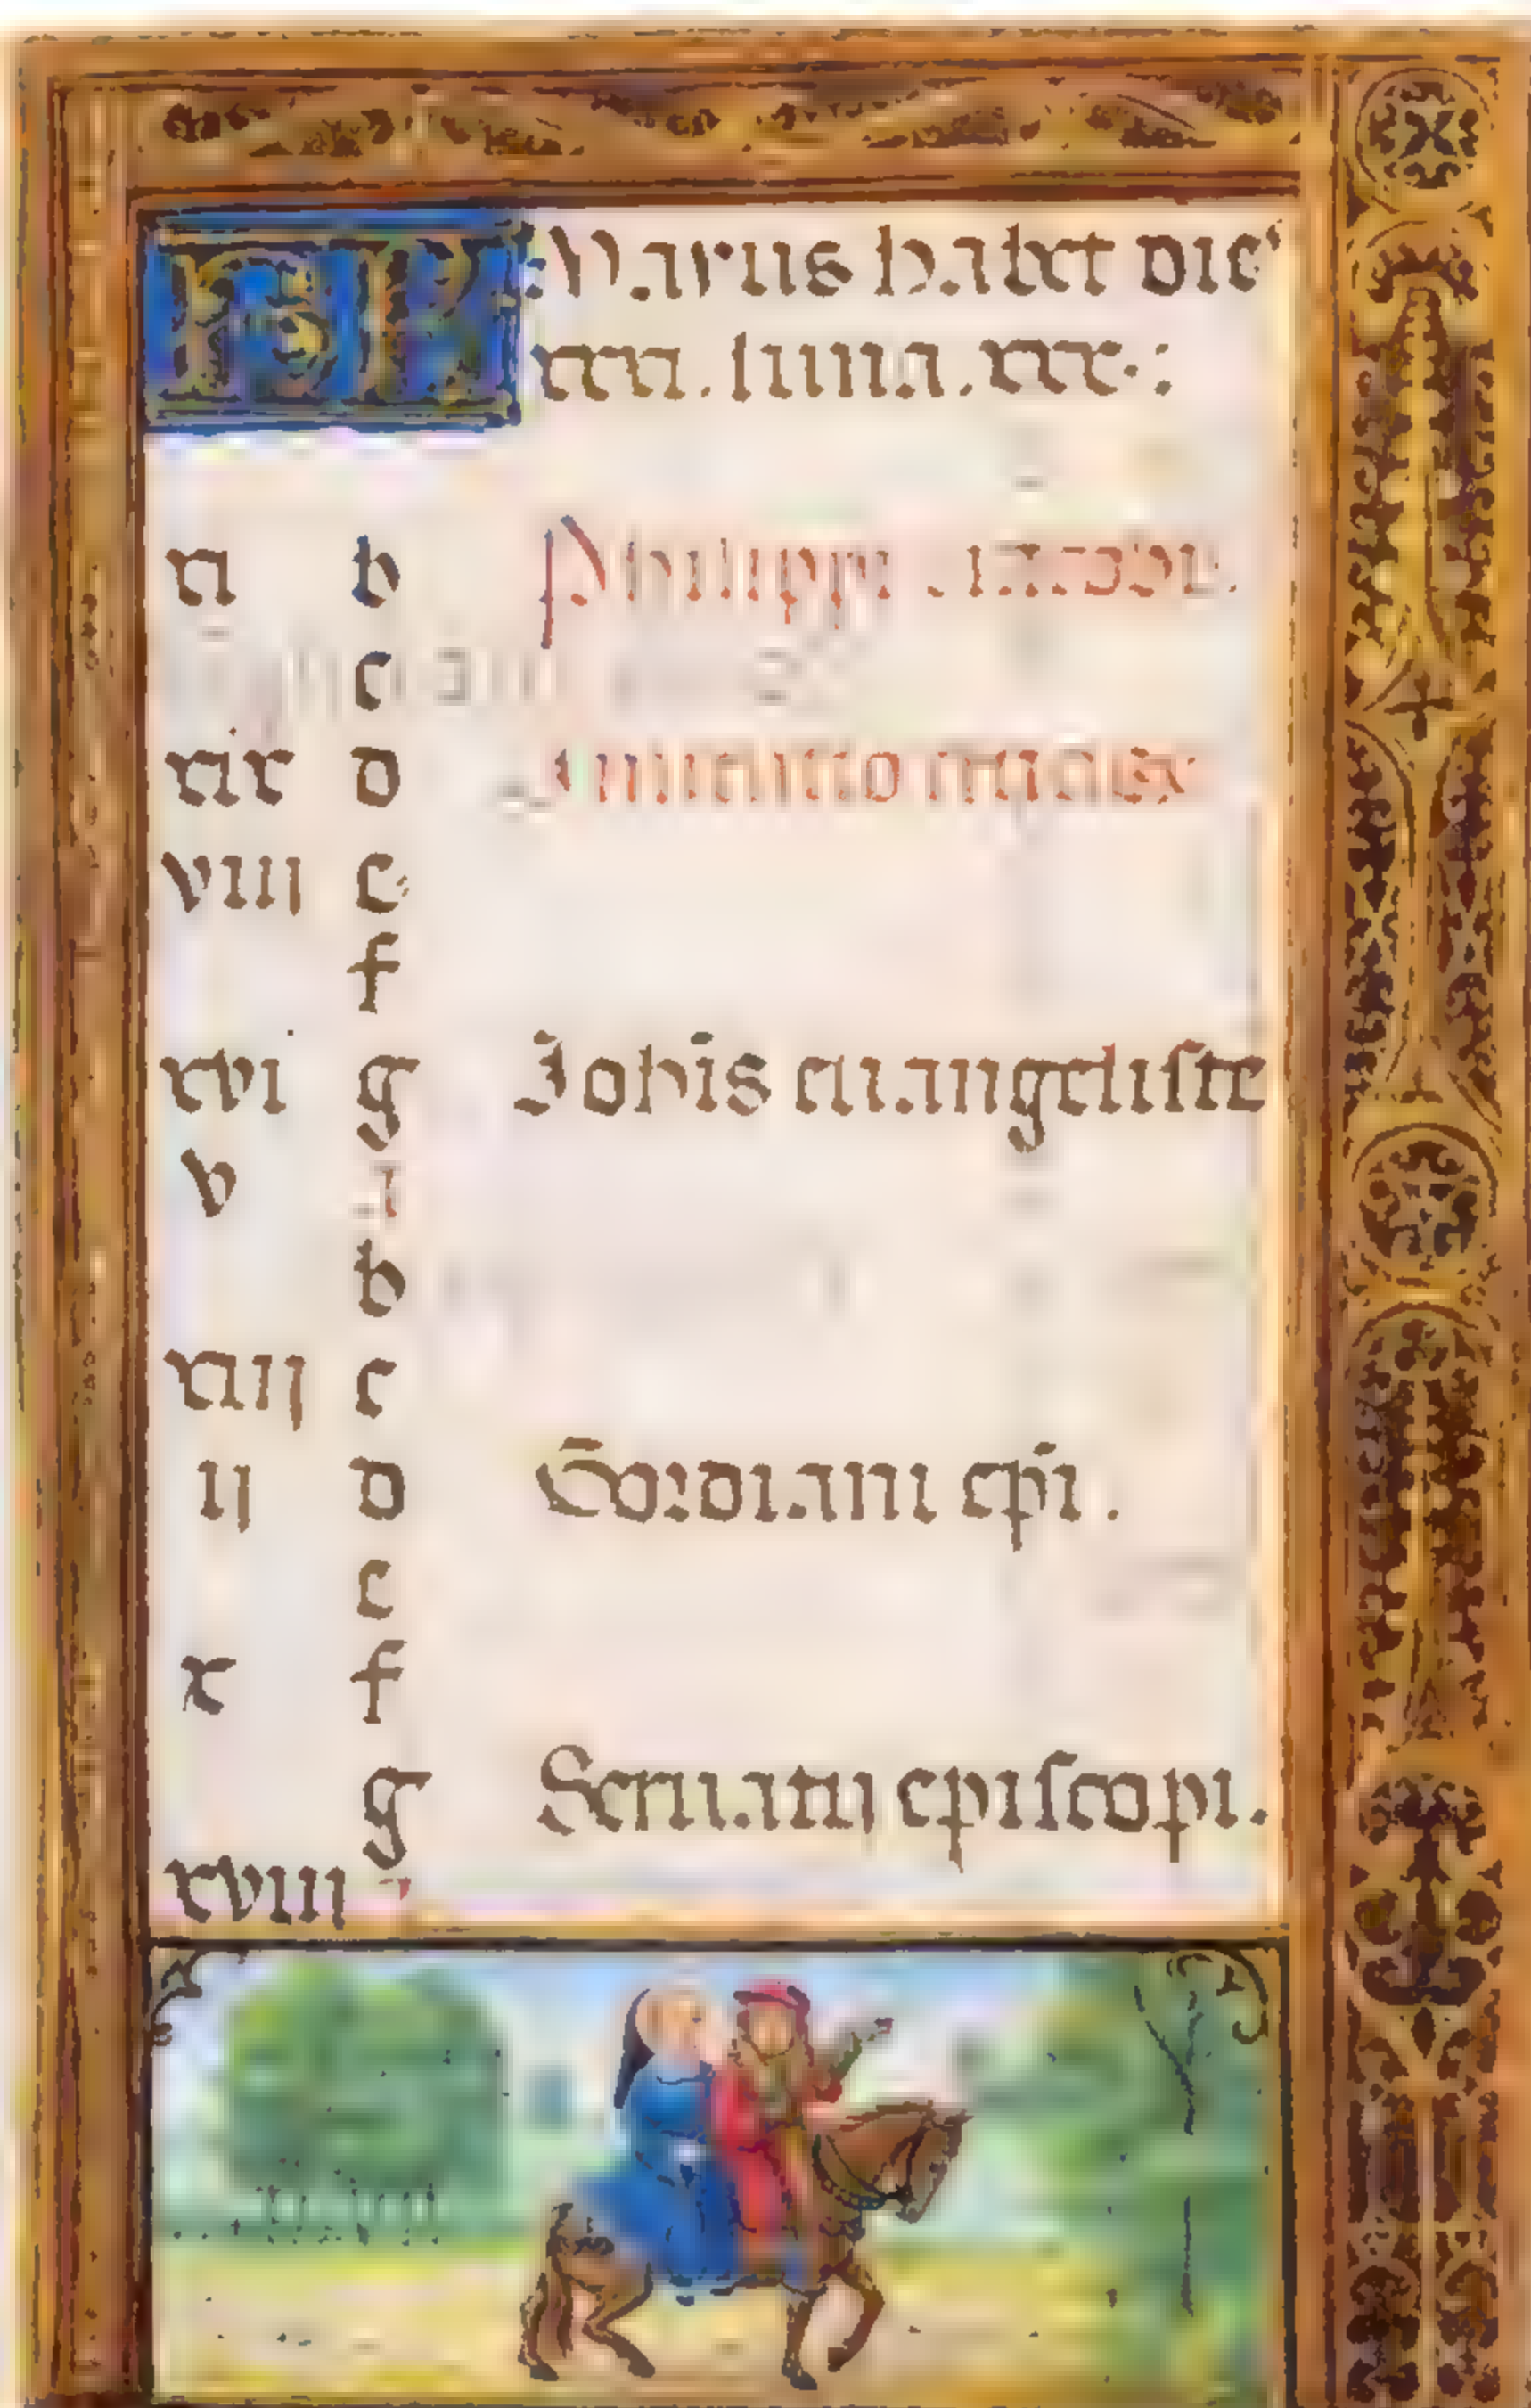 KL Mayus habet die
xxxi. luna. xxx.:
xi b Philippi & iacobi.
c
xix d Inuentio crucis
viii e
f
xvi g Johīs euangeliste
v A
b
xiij c
ij d Gordiani epī.
e
x f
g Seruatij episcopi.
xviii A